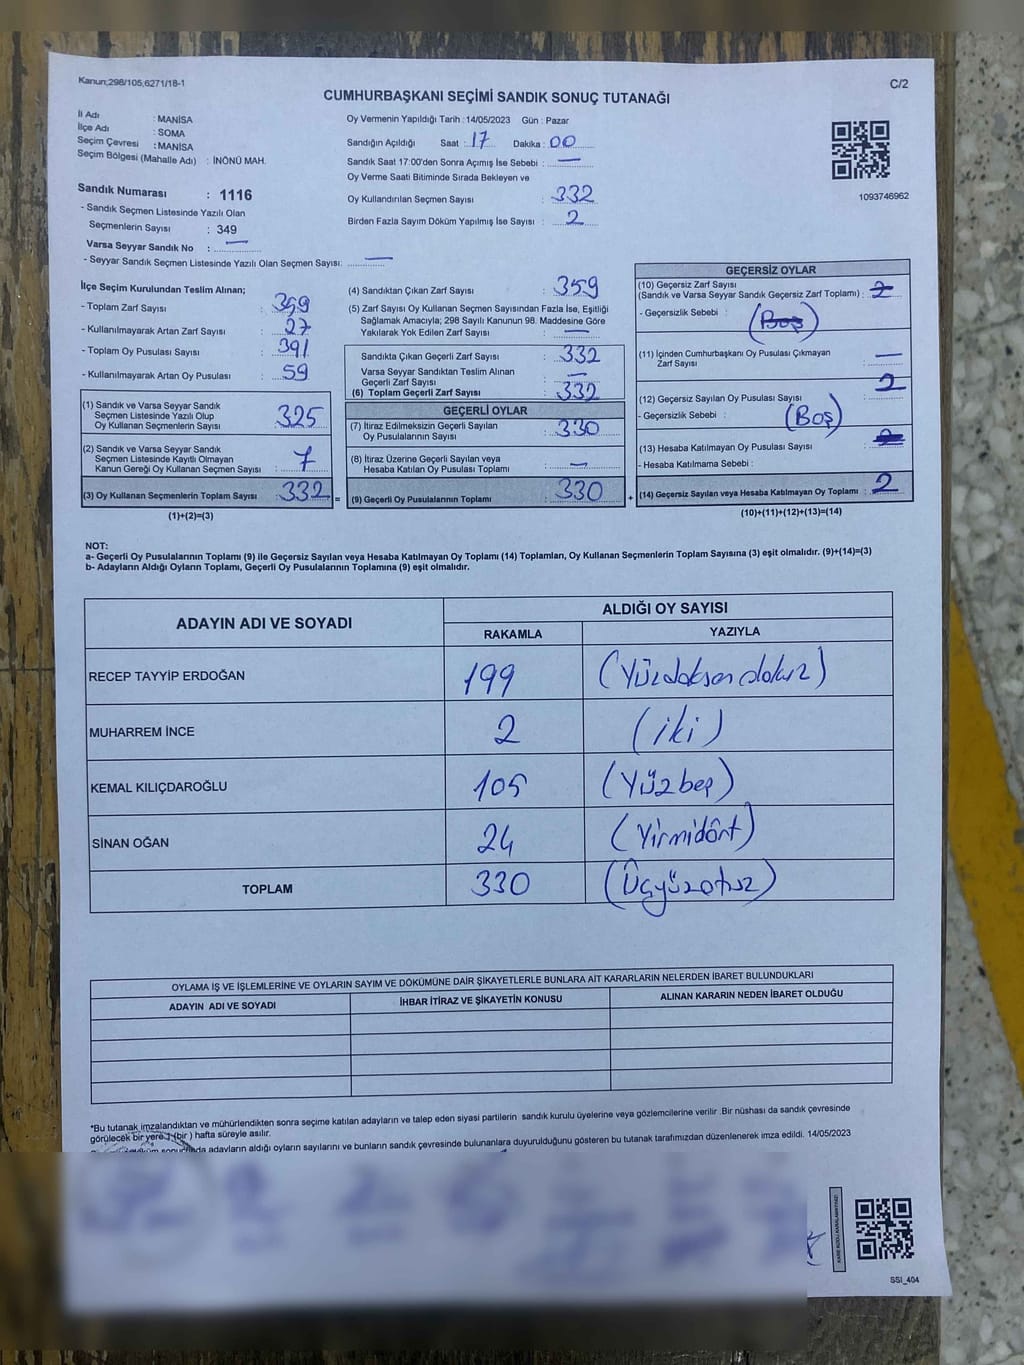 Kanun;298/105,6271/18-1
C/2
CUMHURBAŞKANI SEÇİMİ SANDIK SONUÇ TUTANAĞI
İl Adı : MANİSA
İlçe Adı : SOMA
Seçim Çevresi : MANİSA
Seçim Bölgesi (Mahalle Adı) : İNÖNÜ MAH.
Sandık Numarası : 1116
- Sandık Seçmen Listesinde Yazılı Olan
Seçmenlerin Sayısı : 349
Varsa Seyyar Sandık No : —
- Seyyar Sandık Seçmen Listesinde Yazılı Olan Seçmen Sayısı: —
Oy Vermenin Yapıldığı Tarih : 14/05/2023 Gün : Pazar
Sandığın Açıldığı Saat : 17 Dakika : 00
Sandık Saat 17:00'den Sonra Açımış İse Sebebi : —
Oy Verme Saati Bitiminde Sırada Bekleyen ve
Oy Kullandırılan Seçmen Sayısı : 332
Birden Fazla Sayım Döküm Yapılmış İse Sayısı : 2
1093746962
İlçe Seçim Kurulundan Teslim Alınan;
- Toplam Zarf Sayısı :
- Kullanılmayarak Artan Zarf Sayısı : 27
- Toplam Oy Pusulası Sayısı : 391
- Kullanılmayarak Artan Oy Pusulası : 59
(1) Sandık ve Varsa Seyyar Sandık
Seçmen Listesinde Yazılı Olup
Oy Kullanan Seçmenlerin Sayısı : 325
(2) Sandık ve Varsa Seyyar Sandık
Seçmen Listesinde Kayıtlı Olmayan
Kanun Gereği Oy Kullanan Seçmen Sayısı : 7
(3) Oy Kullanan Seçmenlerin Toplam Sayısı : 332 =
(1)+(2)=(3)
(4) Sandıktan Çıkan Zarf Sayısı : 359
(5) Zarf Sayısı Oy Kullanan Seçmen Sayısından Fazla İse, Eşitliği
Sağlamak Amacıyla; 298 Sayılı Kanunun 98. Maddesine Göre
Yakılarak Yok Edilen Zarf Sayısı : —
Sandıkta Çıkan Geçerli Zarf Sayısı : 332
Varsa Seyyar Sandıktan Teslim Alınan
Geçerli Zarf Sayısı : —
(6) Toplam Geçerli Zarf Sayısı : 332
GEÇERLİ OYLAR
(7) İtiraz Edilmeksizin Geçerli Sayılan
Oy Pusulalarının Sayısı : 330
(8) İtiraz Üzerine Geçerli Sayılan veya
Hesaba Katılan Oy Pusulası Toplamı : —
(9) Geçerli Oy Pusulalarının Toplamı : 330 +
GEÇERSİZ OYLAR
(10) Geçersiz Zarf Sayısı
(Sandık ve Varsa Seyyar Sandık Geçersiz Zarf Toplamı) : 2
- Geçersizlik Sebebi : (Boş)
(11) İçinden Cumhurbaşkanı Oy Pusulası Çıkmayan
Zarf Sayısı : —
(12) Geçersiz Sayılan Oy Pusulası Sayısı : 2
- Geçersizlik Sebebi : (Boş)
(13) Hesaba Katılmayan Oy Pusulası Sayısı :
- Hesaba Katılmama Sebebi :
(14) Geçersiz Sayılan veya Hesaba Katılmayan Oy Toplamı : 2
(10)+(11)+(12)+(13)=(14)
NOT:
a- Geçerli Oy Pusulalarının Toplamı (9) ile Geçersiz Sayılan veya Hesaba Katılmayan Oy Toplamı (14) Toplamları, Oy Kullanan Seçmenlerin Toplam Sayısına (3) eşit olmalıdır. (9)+(14)=(3)
b- Adayların Aldığı Oyların Toplamı, Geçerli Oy Pusulalarının Toplamına (9) eşit olmalıdır.
ADAYIN ADI VE SOYADI
ALDIĞI OY SAYISI
RAKAMLA YAZIYLA
RECEP TAYYİP ERDOĞAN 199 (Yüzdoksandokuz)
MUHARREM İNCE 2 (iki)
KEMAL KILIÇDAROĞLU 105 (Yüzbeş)
SİNAN OĞAN 24 (Yirmidört)
TOPLAM 330 (Üçyüzotuz)
OYLAMA İŞ VE İŞLEMLERİNE VE OYLARIN SAYIM VE DÖKÜMÜNE DAİR ŞİKAYETLERLE BUNLARA AİT KARARLARIN NELERDEN İBARET BULUNDUKLARI
ADAYIN ADI VE SOYADI İHBAR İTİRAZ VE ŞİKAYETİN KONUSU ALINAN KARARIN NEDEN İBARET OLDUĞU
*Bu tutanak imzalandıktan ve mühürlendikten sonra seçime katılan adayların ve talep eden siyasi partilerin sandık kurulu üyelerine veya gözlemcilerine verilir .Bir nüshası da sandık çevresinde
görülecek bir yere 1 (bir ) hafta süreyle asılır.
adayların aldığı oyların sayılarını ve bunların sandık çevresinde bulunanlara duyurulduğunu gösteren bu tutanak tarafımızdan düzenlenerek imza edildi. 14/05/2023
SSI_404